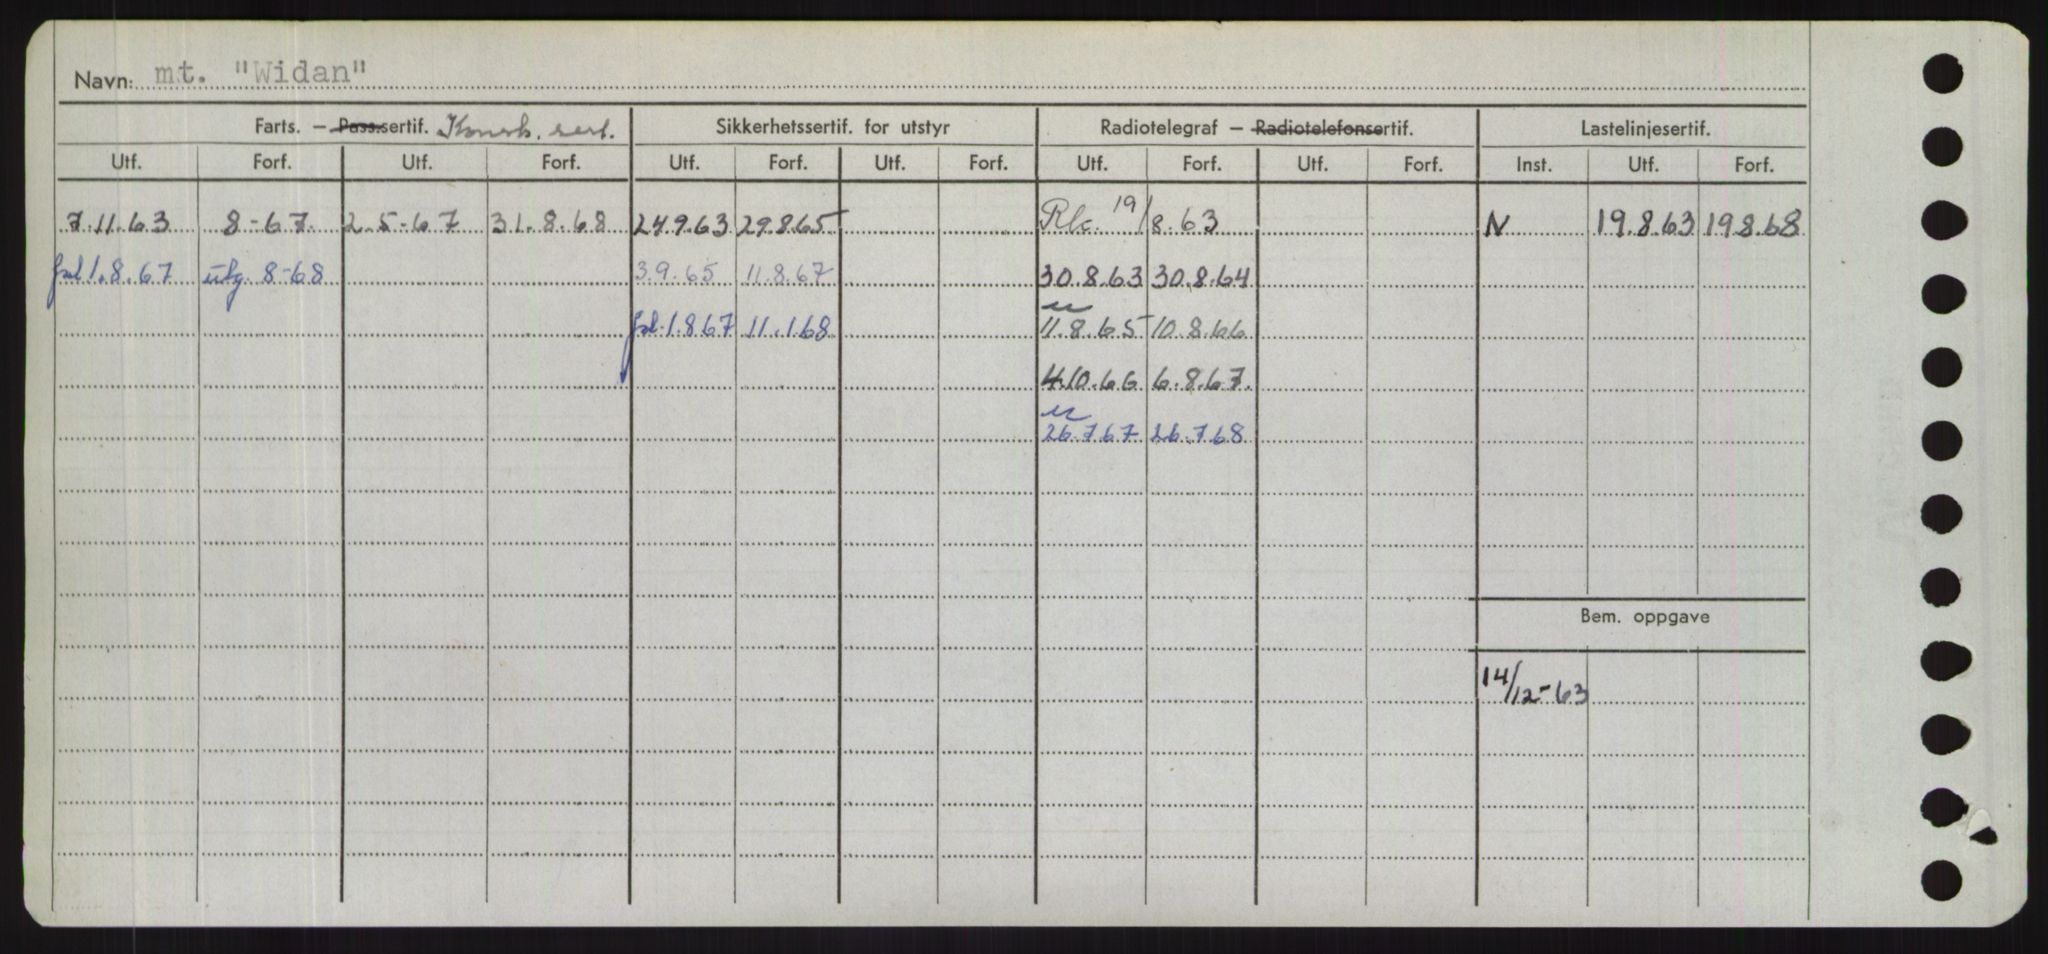 Navn: mt. "Widan"
Farts. — Pass.sertif. Konstr. sert. Sikkerhetssertif. for utstyr Radiotelegraf — Radiotelefonsertif. Lastelinjesertif.
Utf. Forf. Utf. Forf. Utf. Forf. Utf. Forf. Utf. Forf. Utf. Forf. Inst. Utf. Forf.
7.11.63 8-67. 2.5-67 31.8.68 24.9.63 29.8.65 19/8.63 N 19.8.63 19.8.68
1.8.67 utg. 8-68 3.9.65 11.8.67 30.8.63 30.8.64
1.8.67 11.1.68 11.8.65 10.8.66
4.10.66 6.8.67.
26.7.67 26.7.68
Bem. oppgave
14/12-63